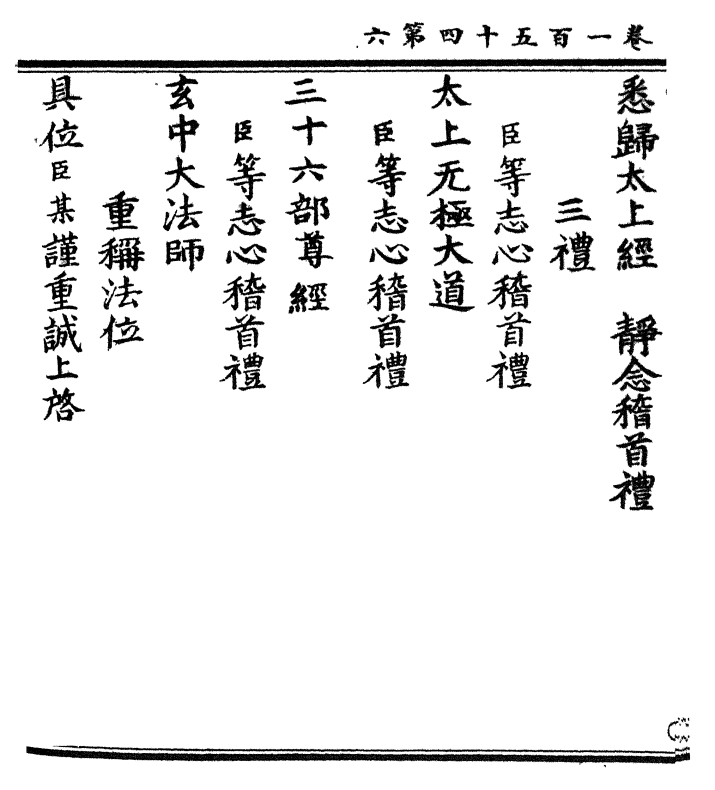 卷一百五十四第六
悉歸太上經　靜念稽首禮
三禮
臣等志心稽首禮
太上无極大道
臣等志心稽首禮
三十六部尊經
臣等志心稽首禮
玄中大法師
重稱法位
具位臣某謹重誠上啓